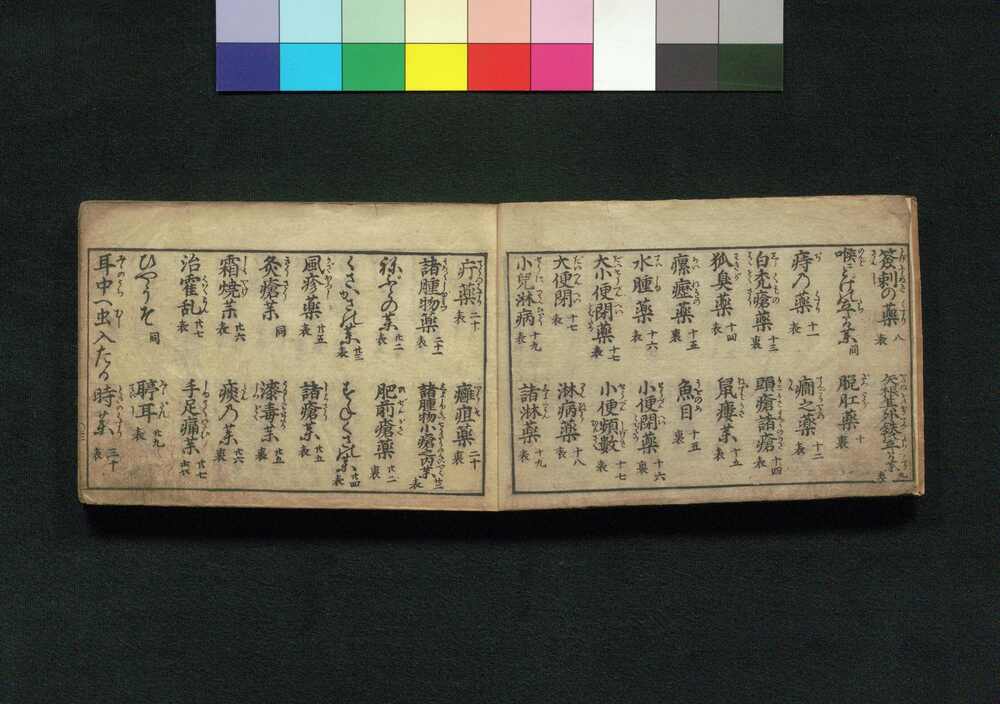 刺の薬 八 表
脱肛薬 十
痔の薬 十一 表
痛之薬 十二 表
白禿瘡薬 十三 裏
頭瘡諸瘡 十四 表
狐臭薬 十四
鼠瘻薬 十五 表
瘰癧薬 十五 裏
魚目 十五 裏
水腫薬 十六 表
小便閉薬 十六 裏
大小便閉薬 十七 表
小便頻数 十七
大便閉 十七
淋病薬 十八
小児淋病 十九 表
諸淋薬 十九
疔薬 二十 表
癰疽薬 二十 裏
諸腫物薬 二十一 表
諸腫物小瘡之内薬 廿二 表
ねぶとの薬 廿二
肥前瘡薬 廿二 裏
くさかさの薬 廿三 表
くさの薬 廿四 表
風疹薬 廿五 表
諸瘡薬 廿五
灸瘡薬 同
漆毒薬 廿五 裏
霜焼薬 廿六 表
痰乃薬 廿六 裏
治霍乱 廿七 表
手足痛薬 廿七
ひやうそ 同
聤耳 廿九 表
耳中へ虫入たる
時薬 三十 表